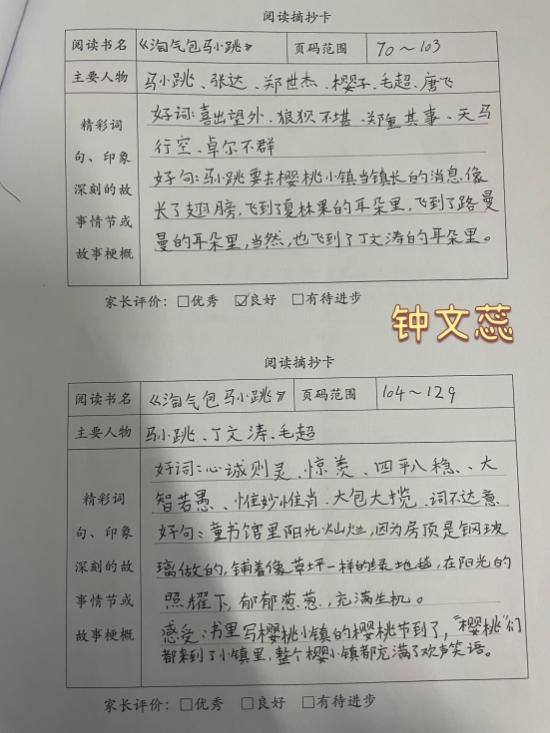 阅读摘抄卡
阅读书名 《淘气包马小跳》 页码范围 70～103
主要人物 马小跳、张达、郑世杰、樱子、毛超、唐飞
精彩词句、印象深刻的故事情节或故事梗概
好词:喜出望外、狼狈不堪、郑重其事、天马
行空、卓尔不群
好句:马小跳要去樱桃小镇当镇长的消息,像
长了翅膀,飞到了夏林果的耳朵里,飞到了路曼
曼的耳朵里,当然,也飞到了丁文涛的耳朵里。
家长评价: □优秀 ☑良好 □有待进步
钟文蕊
阅读摘抄卡
阅读书名 《淘气包马小跳》 页码范围 104～129
主要人物 马小跳、丁文涛、毛超
精彩词句、印象深刻的故事情节或故事梗概
好词:心诚则灵、惊羡、四平八稳、大
智若愚、惟妙惟肖、大包大揽、词不达意
好句:童书馆里阳光灿烂,因为房顶是钢玻
璃做的,铺着像草坪一样的绿地毯,在阳光的
照耀下,郁郁葱葱,充满生机。
感受:书里写樱桃小镇的樱桃节到了,“樱桃”们
都来到了小镇里,整个樱小镇都充满了欢声笑语。
家长评价: □优秀 □良好 □有待进步